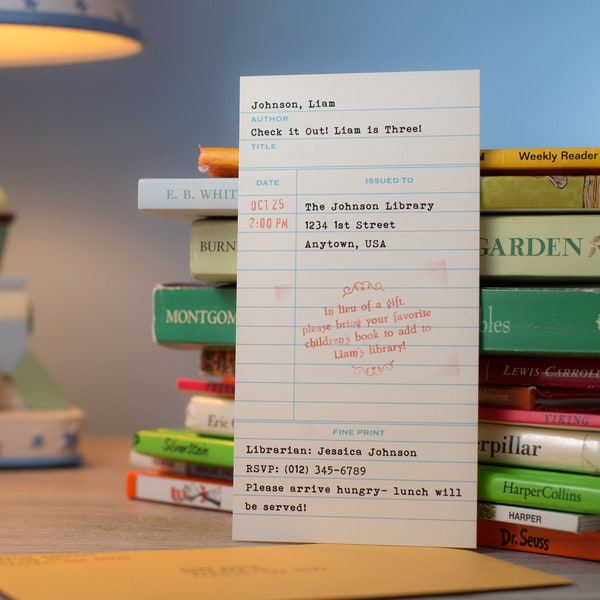 Johnson, Liam
AUTHOR
Check it Out! Liam is Three!
TITLE
DATE
ISSUED TO
OCT 25
2:00 PM
The Johnson Library
1234 1st Street
Anytown, USA
In lieu of a gift,
please bring your favorite
children's book to add to
Liam's library!
FINE PRINT
Librarian: Jessica Johnson
RSVP: (012) 345-6789
Please arrive hungry- lunch will
be served!
E. B. WHIT
BURN
MONTGOM
Eric
Silverstein
Weekly Reader
GARDEN
bles
LEWIS CARROLL
VIKING
erpillar
HarperCollins
HARPER
Dr. Seuss